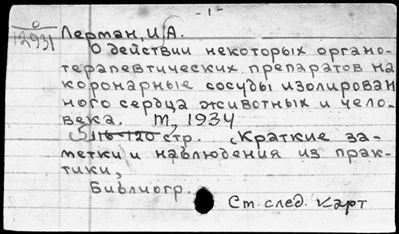 - 1 -
0
12931
Лерман, И.А.
О действии некоторых органо-
терапевтических препаратов на
коронарные сосуды изолирован
ного сердца животных и чело-
века. т, 1934
116-120 стр. "Краткие за-
метки и наблюдения из прак-
тики,
Библиогр.
См. след. карт